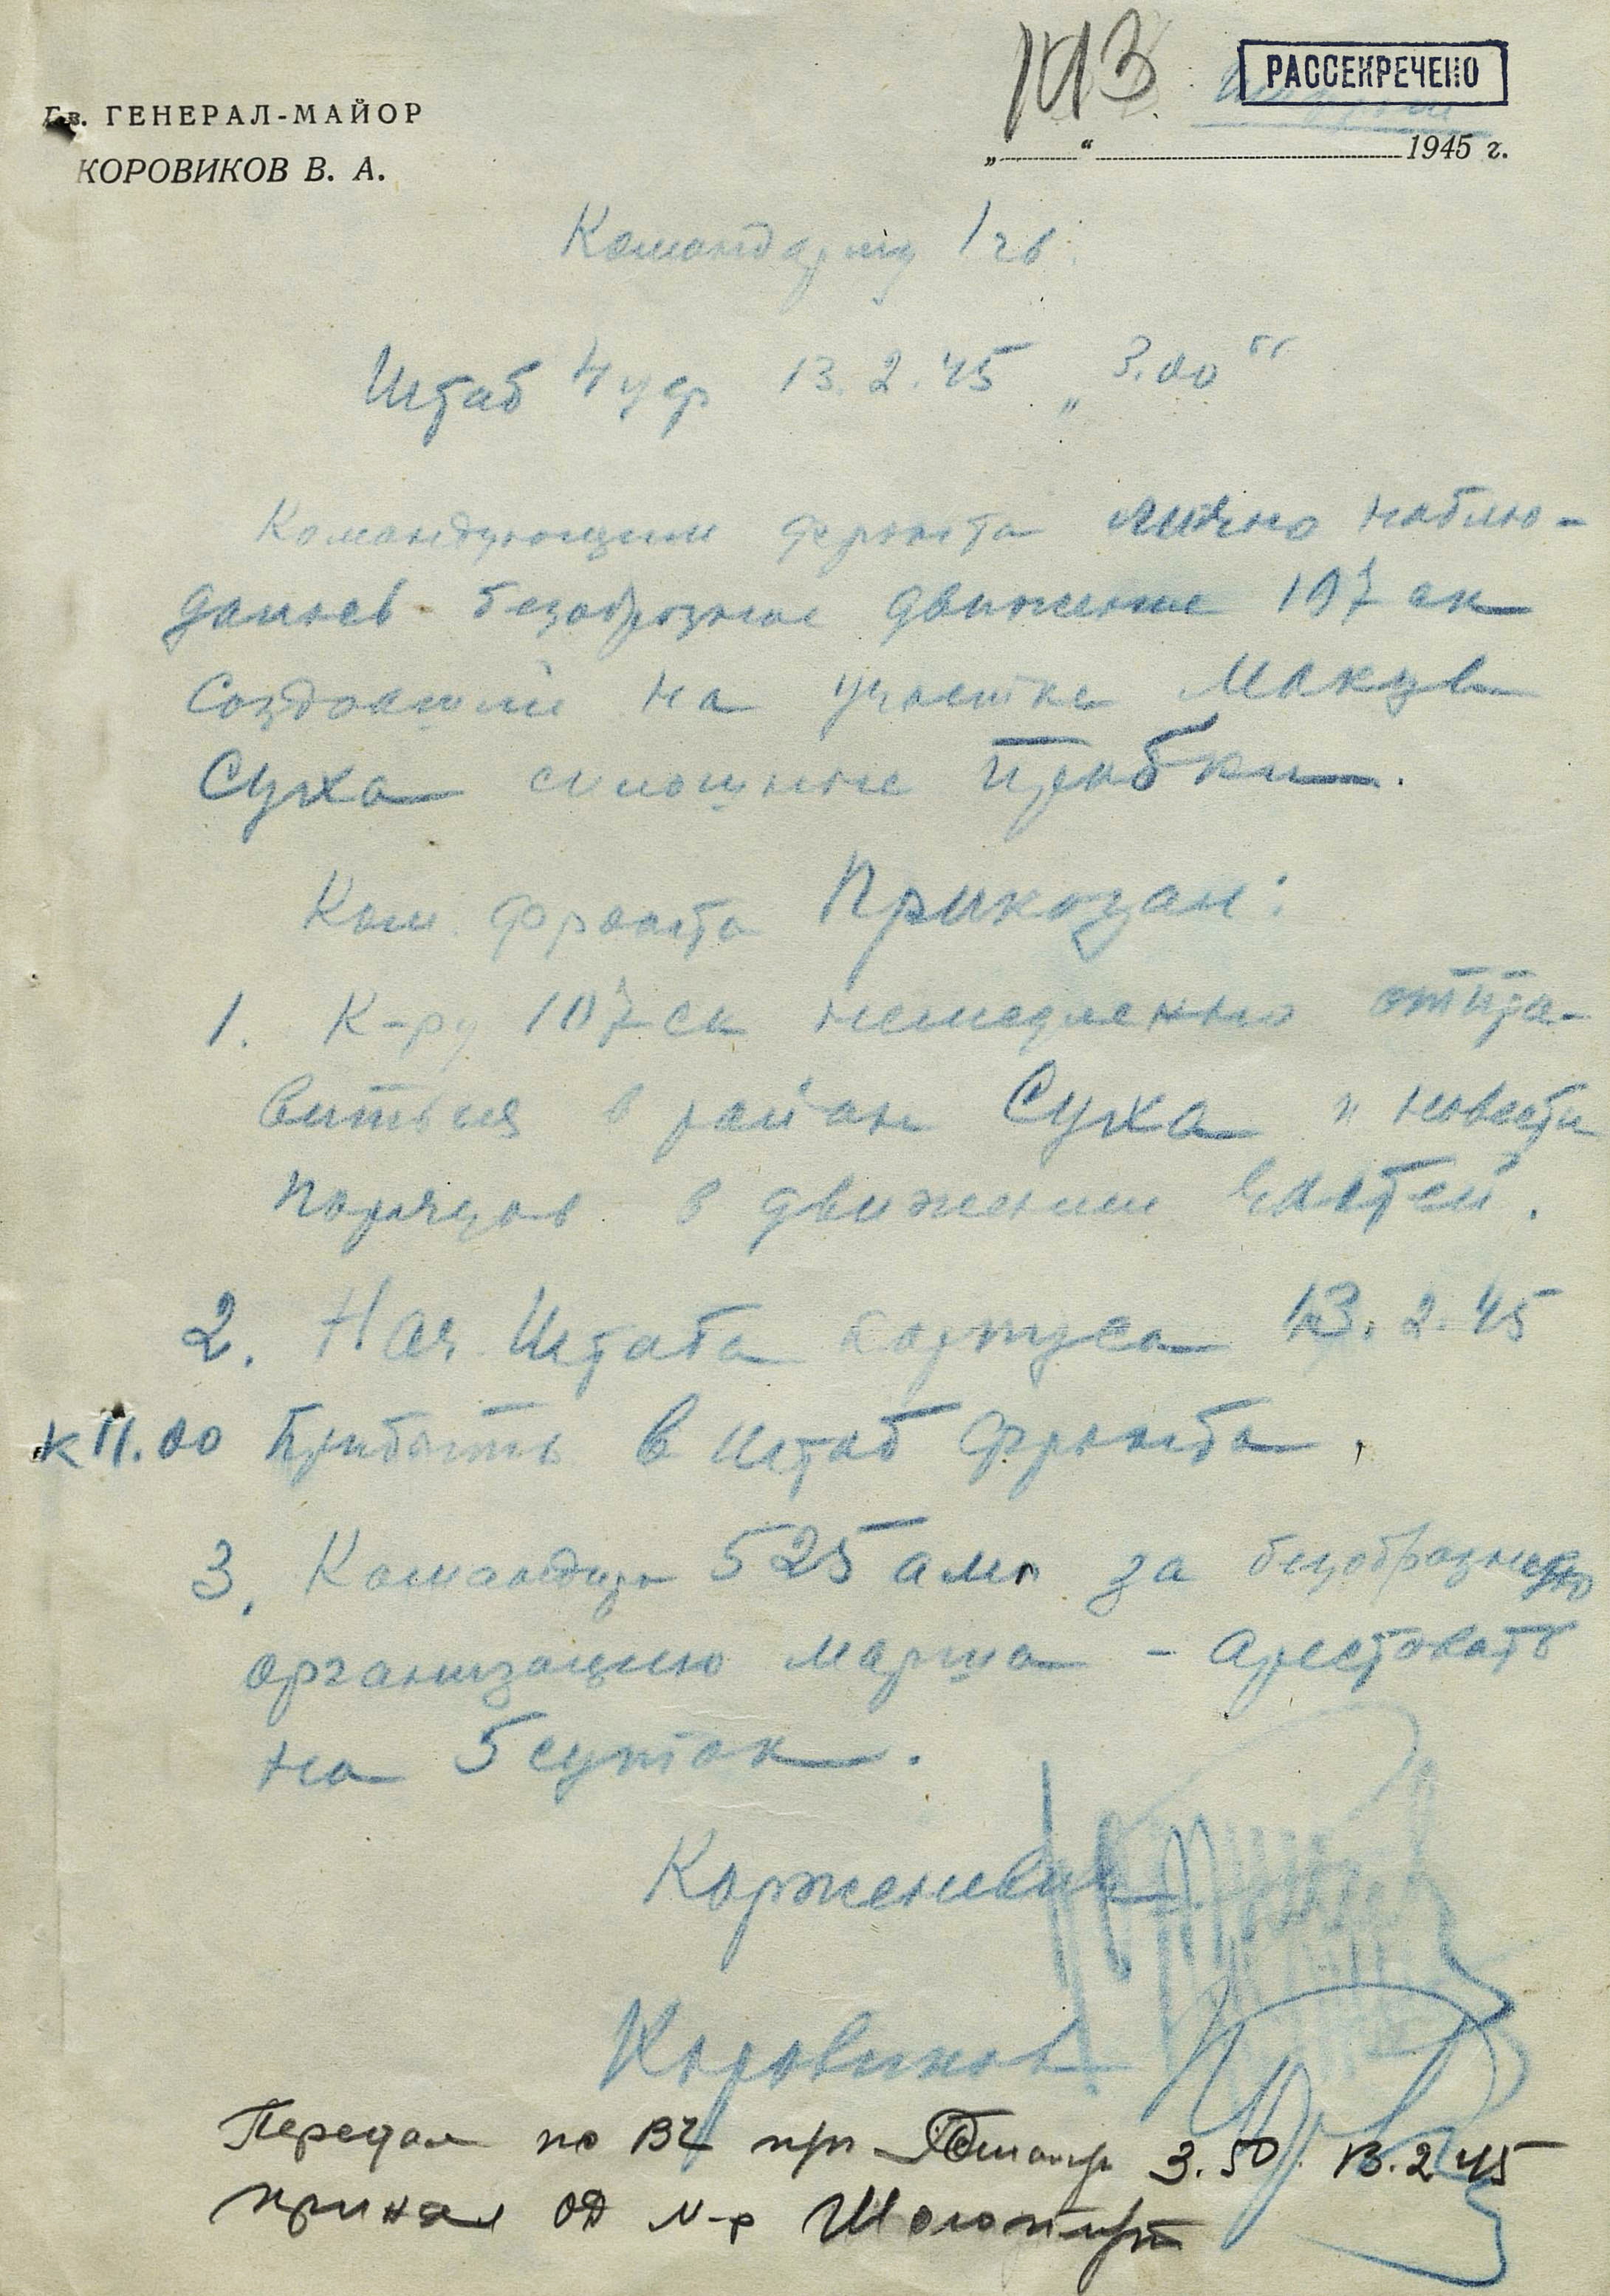 113
РАССЕКРЕЧЕНО
Гв. ГЕНЕРАЛ-МАЙОР
КОРОВИКОВ В. А.
„ “ 1945 г.
Командарму 1 гв.
Штаб 4 уф 13.2.45 „3.00“
Командующим фронта лично наблю-
далось безобразное движение 107 ск
создавшим на участке Макув
Суха сплошные пробки.
Ком. фронта Приказал:
1. К-ру 107 ск немедленно отпра-
виться в район Суха и навести
порядок в движении частей.
2. Нач Штаба корпуса 13.2.45
к 11.00 Прибыть в штаб фронта.
3. Командира 525 за безобразную
организацию марша - арестовать
на 5 суток.
Корженевич
Коровиков
Передал по ВЧ 3.50. 13.2.45
принял ОД м-р